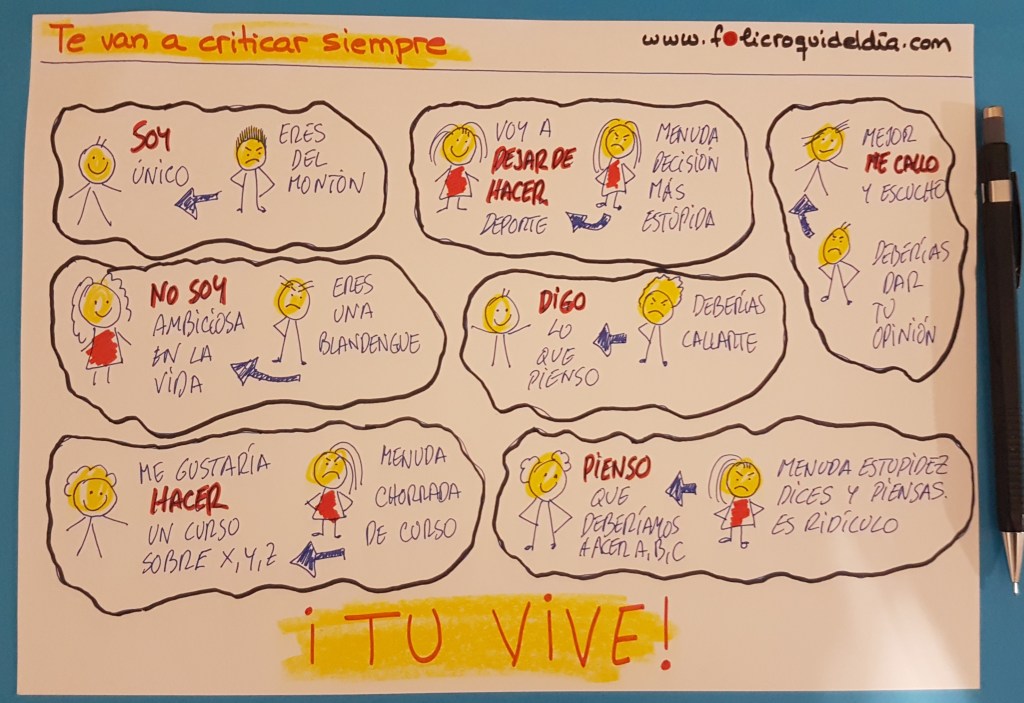 Te van a criticar siempre
www.folicroquideldía.com
SOY
ÚNICO
ERES
DEL
MONTÓN
VOY A
DEJAR DE
HACER
DEPORTE
MENUDA
DECISIÓN
MÁS
ESTÚPIDA
MEJOR
ME CALLO
Y ESCUCHO
DEBERÍAS
DAR
TU
OPINIÓN
NO SOY
AMBICIOSA
EN LA
VIDA
ERES
UNA
BLANDENGUE
DIGO
LO
QUE
PIENSO
DEBERÍAS
CALLARTE
ME GUSTARÍA
HACER
UN CURSO
SOBRE X, Y, Z
MENUDA
CHORRADA
DE CURSO
PIENSO
QUE
DEBERÍAMOS
HACER A, B, C
MENUDA ESTUPIDEZ
DICES Y PIENSAS.
ES RIDÍCULO
¡TU VIVE!